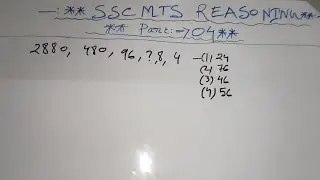 —: ** SSC MTS REASONING**
** Part:⇒04**
2880, 480, 96, ?, 8, 4 —(1) 24
(2) 76
(3) 46
(4) 56